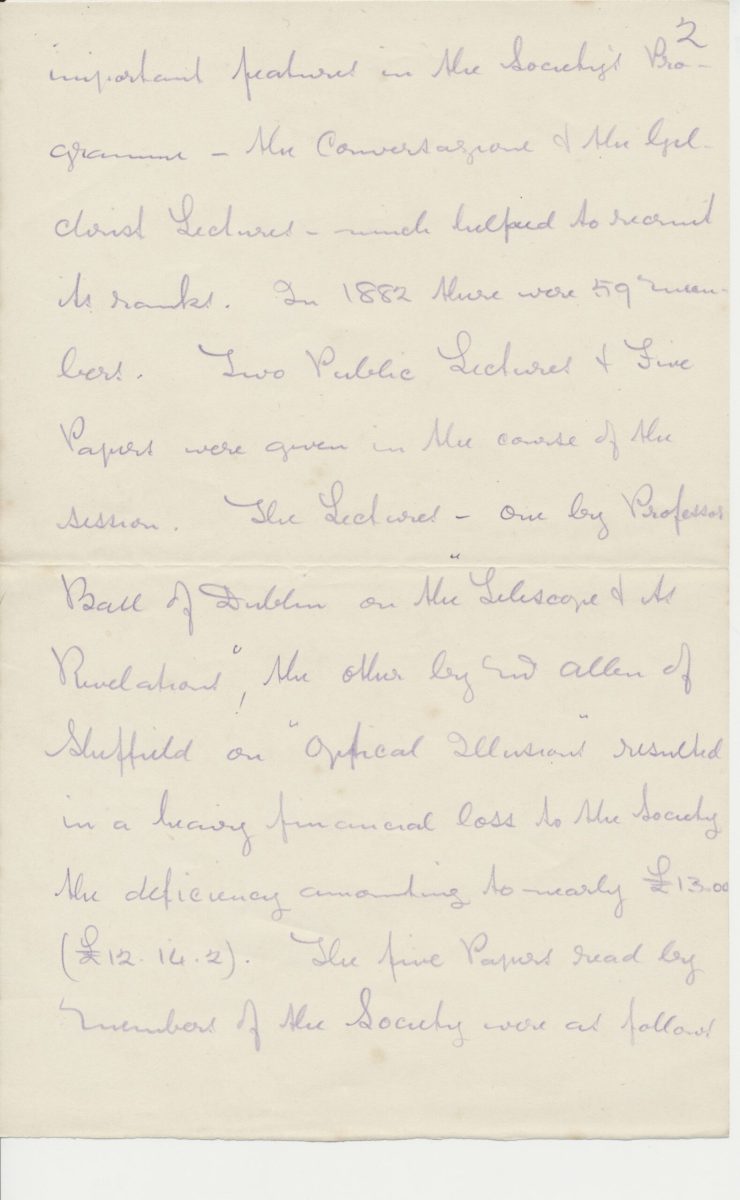 2
important features in the Society's Pro-
gramme - the Conversazione & the Gil-
christ Lectures - much helped to recruit
its ranks. In 1882 there were 59 mem-
bers. Two Public Lectures & Five
Papers were given in the course of the
session. The Lectures - one by Professor
Ball of Dublin on the "Telescope & its
Revelations", the other by Mr Allen of
Sheffield on "Optical Illusions" resulted
in a heavy financial loss to the Society
the deficiency amounting to nearly £13.00
(£12.14.2). The five Papers read by
members of the Society were as follows